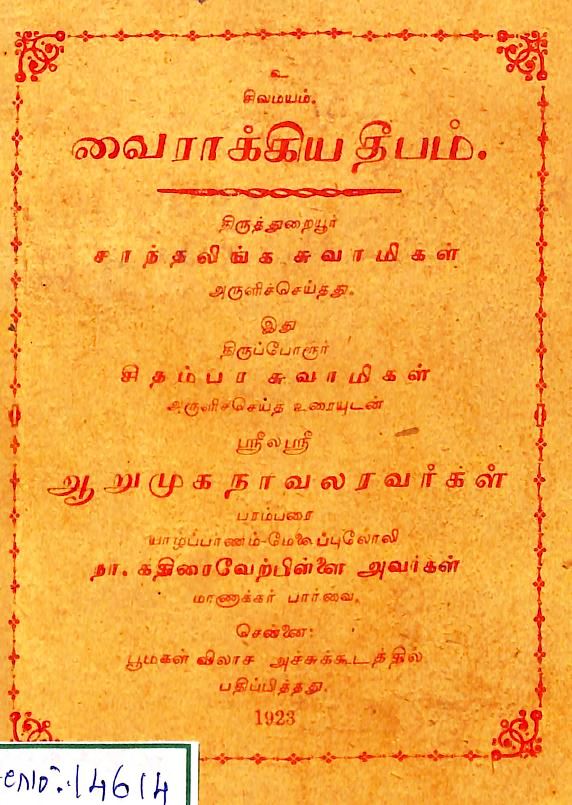 உ
சிவமயம்.
வைராக்கிய தீபம்.
திருத்துறையூர்
சாந்தலிங்க சுவாமிகள்
அருளிச்செய்தது.
இது
திருப்போரூர்
சிதம்பர சுவாமிகள்
அருளிச்செய்த உரையுடன்
ஸ்ரீலஸ்ரீ
ஆறுமுகநாவலரவர்கள்
பரம்பரை
யாழ்ப்பாணம்-மேலைப்புலோலி
நா. கதிரைவேற்பிள்ளை அவர்கள்
மாணாக்கர் பார்வை.
சென்னை:
பூமகள் விலாச அச்சுக்கூடத்தில்
பதிப்பித்தது.
1923
14614